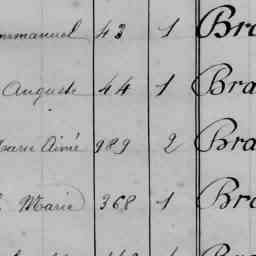 mmanuel 43 1 Bra
Auguste 44 1 Bra
Marie Aimé 989 2 Bra
Marie 368 1 Bra